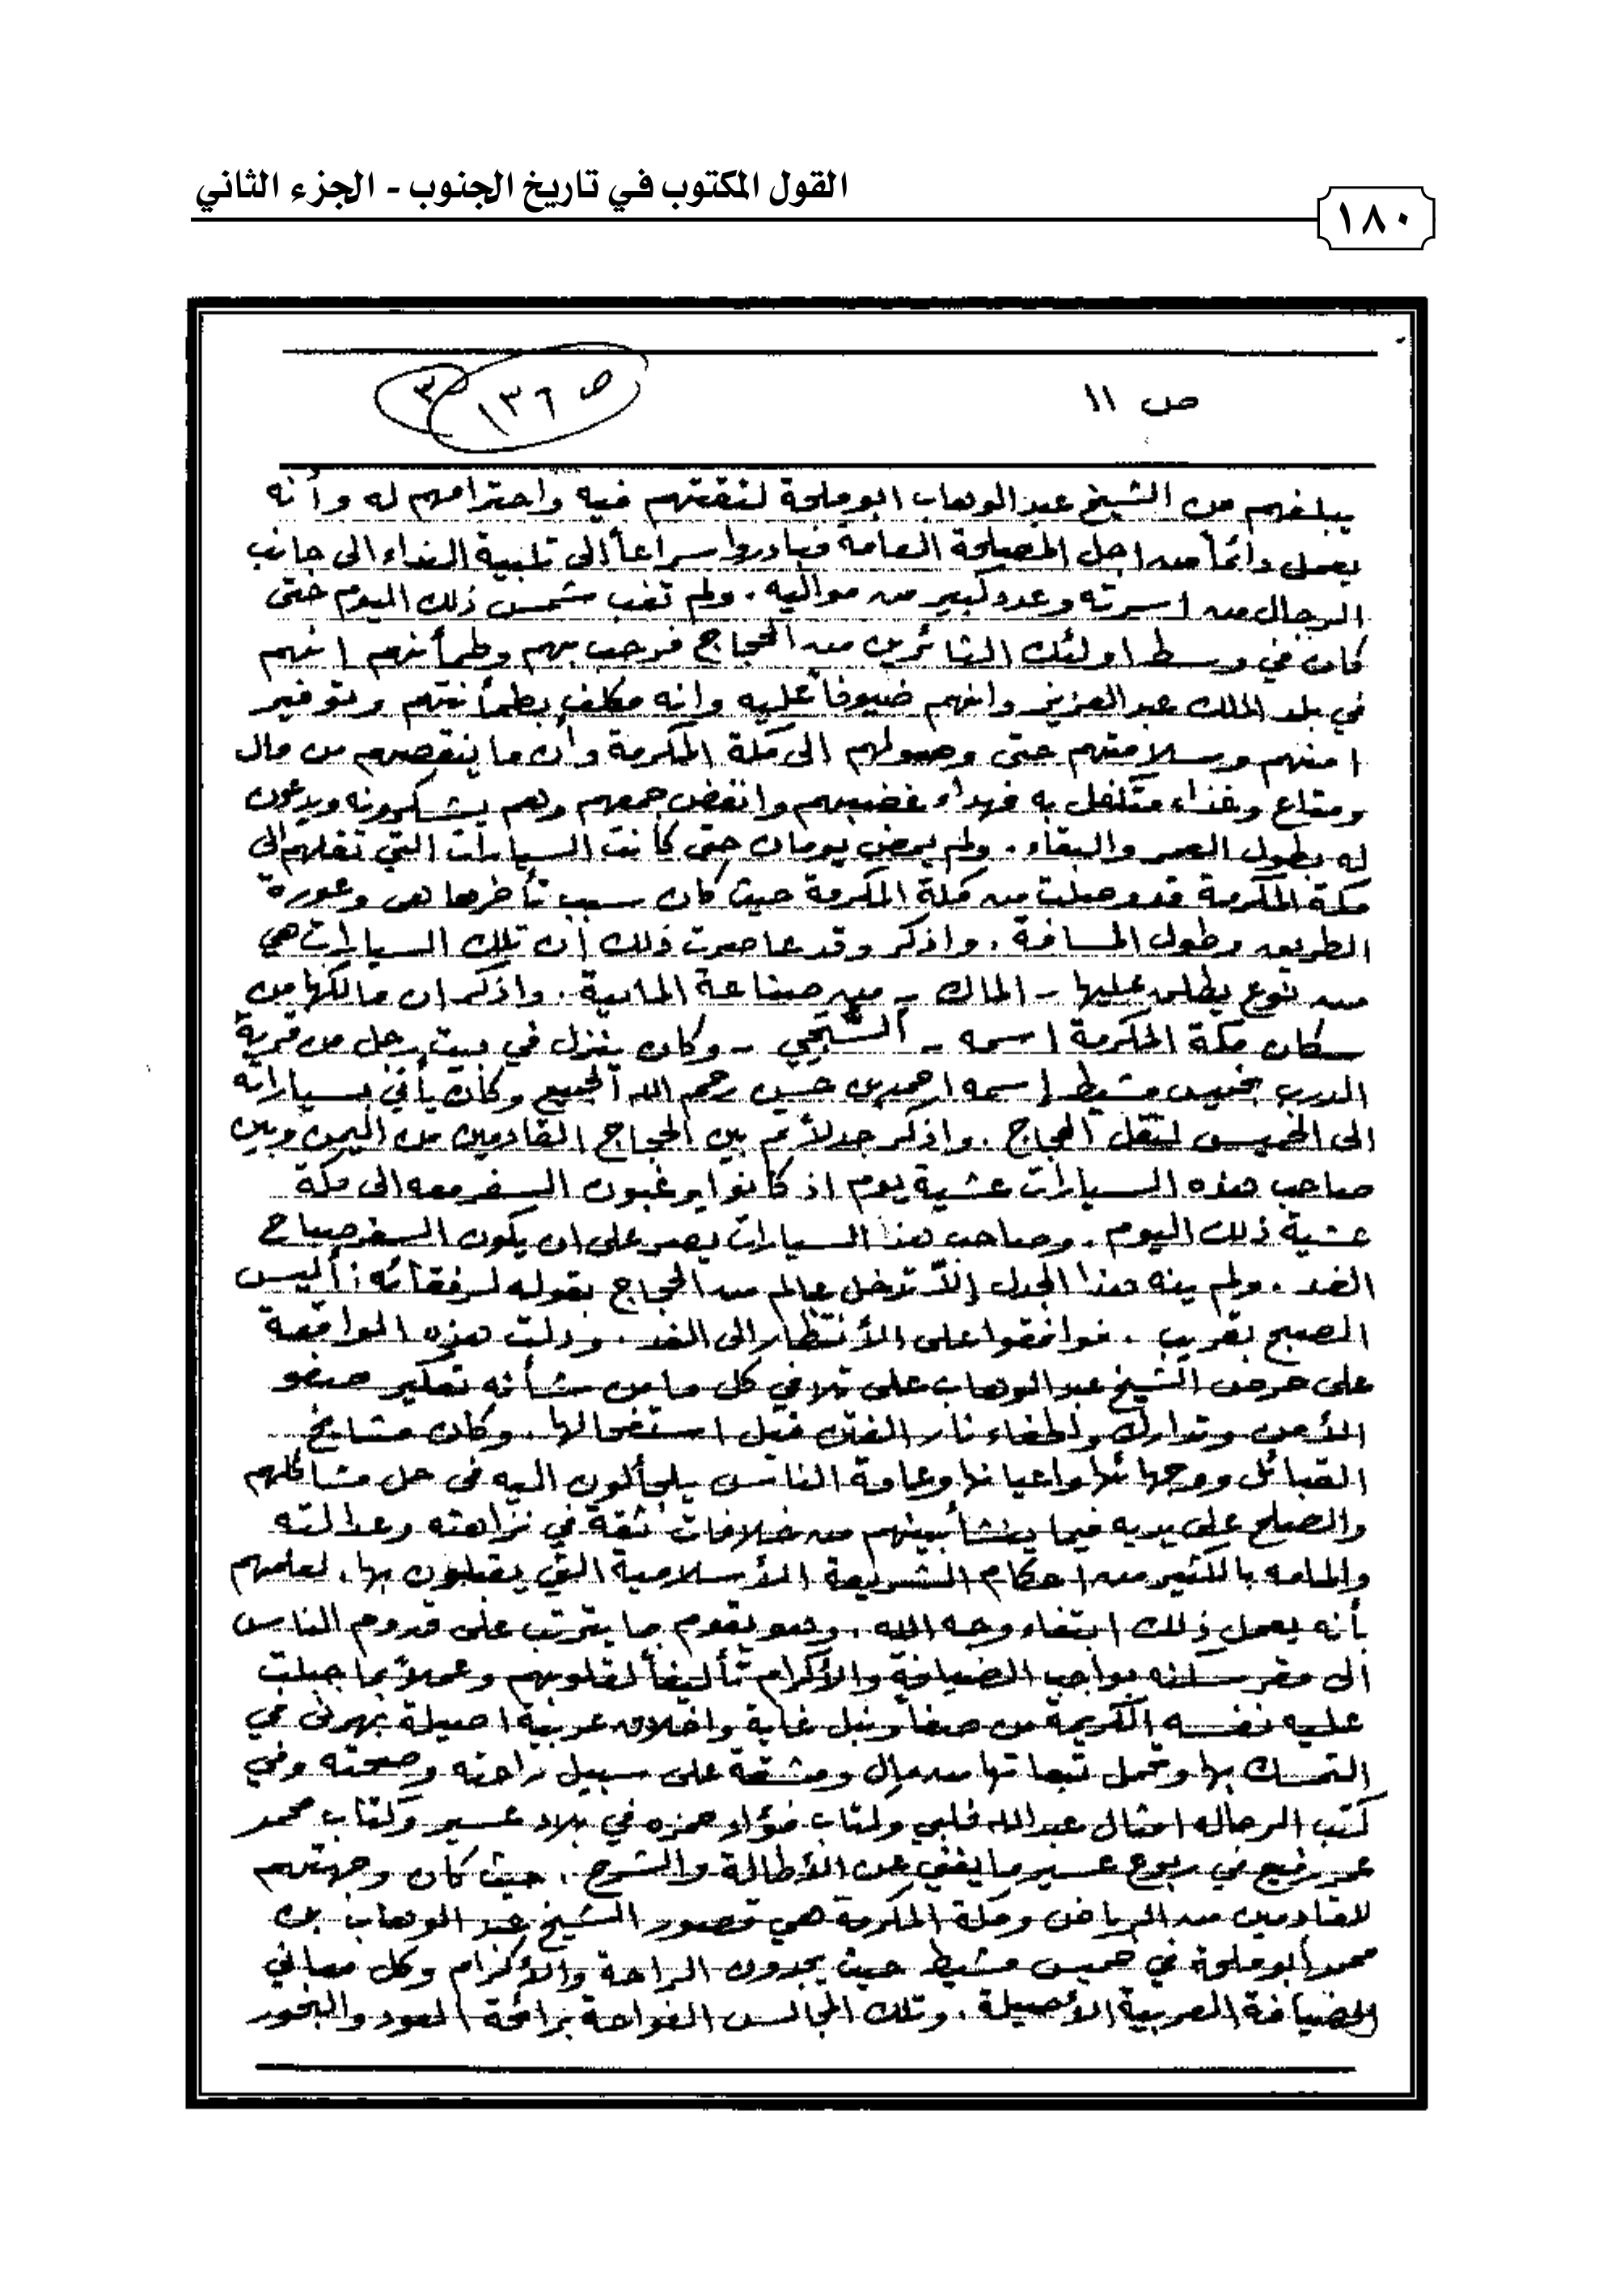 القول المكتوب في تاريخ الجنوب - الجزء الثاني
١٨٠
ص ١١
ص ١٣٦
٣
يبلغهم من الشيخ عبدالوهاب ابوملحة لثقتهم فيه واحترامهم له وأنه
يعمل دائماً من اجل المصلحة العامة فبادروا سراعاً الى تلبية النداء الى جانب
الرجال من اسرته وعدد كبير من مواليه . ولم تغب شمس ذلك اليوم حتى
كان في وسط اولئك الثائرين من الحجاج فرحب بهم وطمأنهم انهم
في بلد الملك عبدالعزيز وانهم ضيوفاً عليه وانه مكلف بطمأنتهم وتوفير
امنهم وسلامتهم حتى وصولهم الى مكة المكرمة وأن ما ينقصهم من مال
ومتاع وغذاء متكفل به فهدأ غضبهم وانفض جمعهم وهم يشكرونه ويدعون
له بطول العمر والبقاء . ولم يمض يومان حتى كانت السيارات التي تقلهم الى
مكة المكرمة قد وصلت من مكة المكرمة حيث كان سبب تأخرها هي وعورة
الطريق وطول المسافة . واذكر وقد عاصرت ذلك أن تلك السيارات هي
من نوع يطلق عليها - الماك - من صناعة المانية . واذكر ان مالكها من
سكان مكة المكرمة اسمه - الشبجي - وكان ينزل في بيت رجل من قرية
الدرب بخميس مشيط اسمه احمد بن حسين رحم الله الجميع وكان يأتي بسياراته
الى الخميس لنقل الحجاج . واذكر جدلاً تم بين الحجاج القادمين من اليمن وبين
صاحب هذه السيارات عشية يوم اذ كانوا يرغبون السفر معه الى مكة
عشية ذلك اليوم . وصاحب هذا السيارات يصر على ان يكون السفر صباح
الغد . ولم ينه هذا الجدل إلاّ تدخل عالم من الحجاج بقوله لرفقائه : أليس
الصبح بقريب . فوافقوا على الأنتظار الى الغد . ودلت هذه الموافقة
على حرص الشيخ عبدالوهاب على تلافي كل ما من شأنه تعكير صفو
الأمن وتدارك واطفاء نار الفتن قبل استفحالها . وكان مشايخ
القبائل ووجهائها واعيانها وعامة الناس يلجألون اليه فى حل مشاكلهم
والصلح على يديه فيما ينشأ بينهم من خلافات ثقة في نزاهته وعدالته
والمامه بالكثير من احكام الشريعة الأسلامية التي يقبلون بها . لعلمهم
بأنه يعمل ذلك ابتغاء وجه الله . وهو يقوم بما يترتب على قدوم الناس
الى مقر سكنه بواجب الضيافة والأكرام تأليفاً لقلوبهم وعملاً بما جبلت
عليه نفسه الكريمة من صفاً ونبل غاية واخلاق عربية اصيلة في
التمسك بها وتحمل تبعاتها من مال ومشقة على سبيل راحته وصحته وفي
كتب الرحاله امثال عبدالله فلبي وكتاب فؤاد حمزه في بلاد عسير وكتاب محمد
عمر رفيع في ربوع عسير ما يغني عن الأطالة والشرح . حيث كان وجهتهم
للقادمين من الرياض ومكة المكرمة هي قصور الشيخ عبد الوهاب بن
محمد أبوملحة في خميس مشيط حيث يجدون الراحة والأكرام وكل معاني
الضيافة العربية الأصيلة . وتلك المجالس الفواحة برائحة العود والبخور